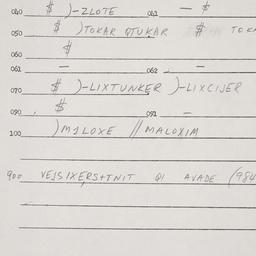 040 $ )-ZLOTE 041 — $
050 $ )TOKAR QTUKAR $ TOKA
060 $
061 — 062 —
070 $ )-LIXTUNKER )-LIXCIJER
090 $ 091 —
100 )MILOXE // MALOXIM
900 VEJSIXERS+TNIT QI AVADE (984